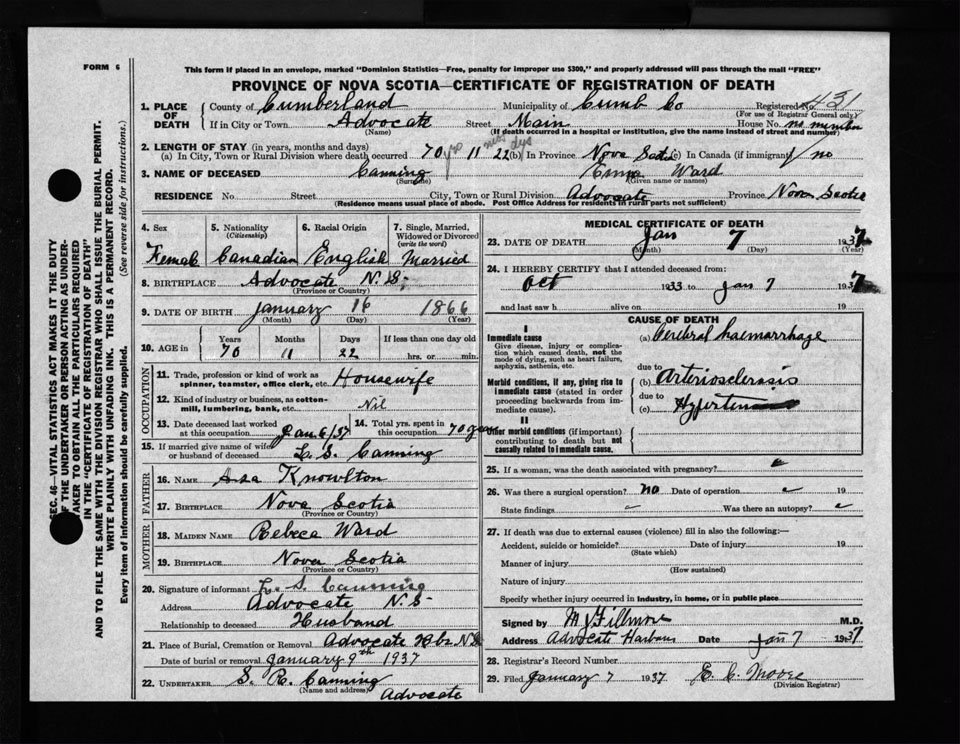 FORM 6
This form if placed in an envelope, marked "Dominion Statistics—Free, penalty for improper use $300," and properly addressed will pass through the mail "FREE"
PROVINCE OF NOVA SCOTIA—CERTIFICATE OF REGISTRATION OF DEATH
SEC. 46—VITAL STATISTICS ACT MAKES IT THE DUTY
OF THE UNDERTAKER OR PERSON ACTING AS UNDER-
TAKER TO OBTAIN ALL THE PARTICULARS REQUIRED
IN THE "CERTIFICATE OF REGISTRATION OF DEATH"
AND TO FILE THE SAME WITH THE DIVISION REGISTRAR WHO SHALL ISSUE THE BURIAL PERMIT.
WRITE PLAINLY WITH UNFADING INK. THIS IS A PERMANENT RECORD.
Every item of information should be carefully supplied. (See reverse side for instructions.)
1. PLACE OF DEATH County of Cumberland Municipality of Cumb Co Registered No. 431
(For use of Registrar General only)
If in City or Town Advocate Street Main House No. no number
(Name) (If death occurred in a hospital or institution, give the name instead of street and number)
2. LENGTH OF STAY (in years, months and days)
(a) In City, Town or Rural Division where death occurred 70 yrs 11 mos 22 dys (b) In Province Nova Scotia (c) In Canada (if immigrant) no
3. NAME OF DECEASED Canning Ward
(Surname) (Given name or names)
RESIDENCE No. Street City, Town or Rural Division Advocate Province Nova Scotia
(Residence means usual place of abode. Post Office Address for residents in rural parts not sufficient)
4. Sex 5. Nationality (Citizenship) 6. Racial Origin 7. Single, Married, Widowed or Divorced (write the word)
Female Canadian English Married
8. BIRTHPLACE Advocate N.S.
(Province or Country)
9. DATE OF BIRTH January 16 1866
(Month) (Day) (Year)
10. AGE in Years Months Days If less than one day old
70 11 22 hrs. or min.
OCCUPATION
11. Trade, profession or kind of work as spinner, teamster, office clerk, etc. Housewife
12. Kind of industry or business, as cotton-mill, lumbering, bank, etc. Nil
13. Date deceased last worked at this occupation Jan 6/37 14. Total yrs. spent in this occupation 70 years
15. If married give name of wife or husband of deceased L. S. Canning
FATHER
16. NAME Asa Knowlton
17. BIRTHPLACE Nova Scotia
(Province or Country)
MOTHER
18. MAIDEN NAME Rebeca Ward
19. BIRTHPLACE Nova Scotia
(Province or Country)
20. Signature of informant L. S. Canning
Address Advocate N.S.
Relationship to deceased Husband
21. Place of Burial, Cremation or Removal Advocate Hbr N.S.
Date of burial or removal January 9th 1937
22. UNDERTAKER S. R. Canning
(Name and address) Advocate
MEDICAL CERTIFICATE OF DEATH
23. DATE OF DEATH Jan 7 1937
(Month) (Day) (Year)
24. I HEREBY CERTIFY that I attended deceased from:
Oct 1933 to Jan 7 1937
and last saw h alive on 19
CAUSE OF DEATH
I
Immediate cause (a) Cerebral haemarrhage
Give disease, injury or complication which caused death, not the mode of dying, such as heart failure, asphyxia, asthenia, etc.
due to
Morbid conditions, if any, giving rise to immediate cause (stated in order proceeding backwards from immediate cause). (b) Arteriosclerosis
due to
(c)
II
Other morbid conditions (if important) contributing to death but not causally related to immediate cause.
25. If a woman, was the death associated with pregnancy?
26. Was there a surgical operation? no Date of operation 19
State findings Was there an autopsy?
27. If death was due to external causes (violence) fill in also the following:—
Accident, suicide or homicide? Date of injury 19
(State which)
Manner of injury
(How sustained)
Nature of injury
Specify whether injury occurred in industry, in home, or in public place
Signed by M J Fillmore M.D.
Address Advocate Harbour Date Jan 7 1937
28. Registrar's Record Number
29. Filed January 7 1937 E. C. Moore
(Division Registrar)